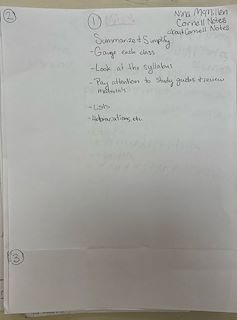 ②
①
Nina McMillen
Cornell Notes
about Cornell Notes
Summarize & Simplify
- Gauge each class
- Look at the syllabus
- Pay attention to study guides & review
materials
- Lists
- Abbreviations, etc.
③